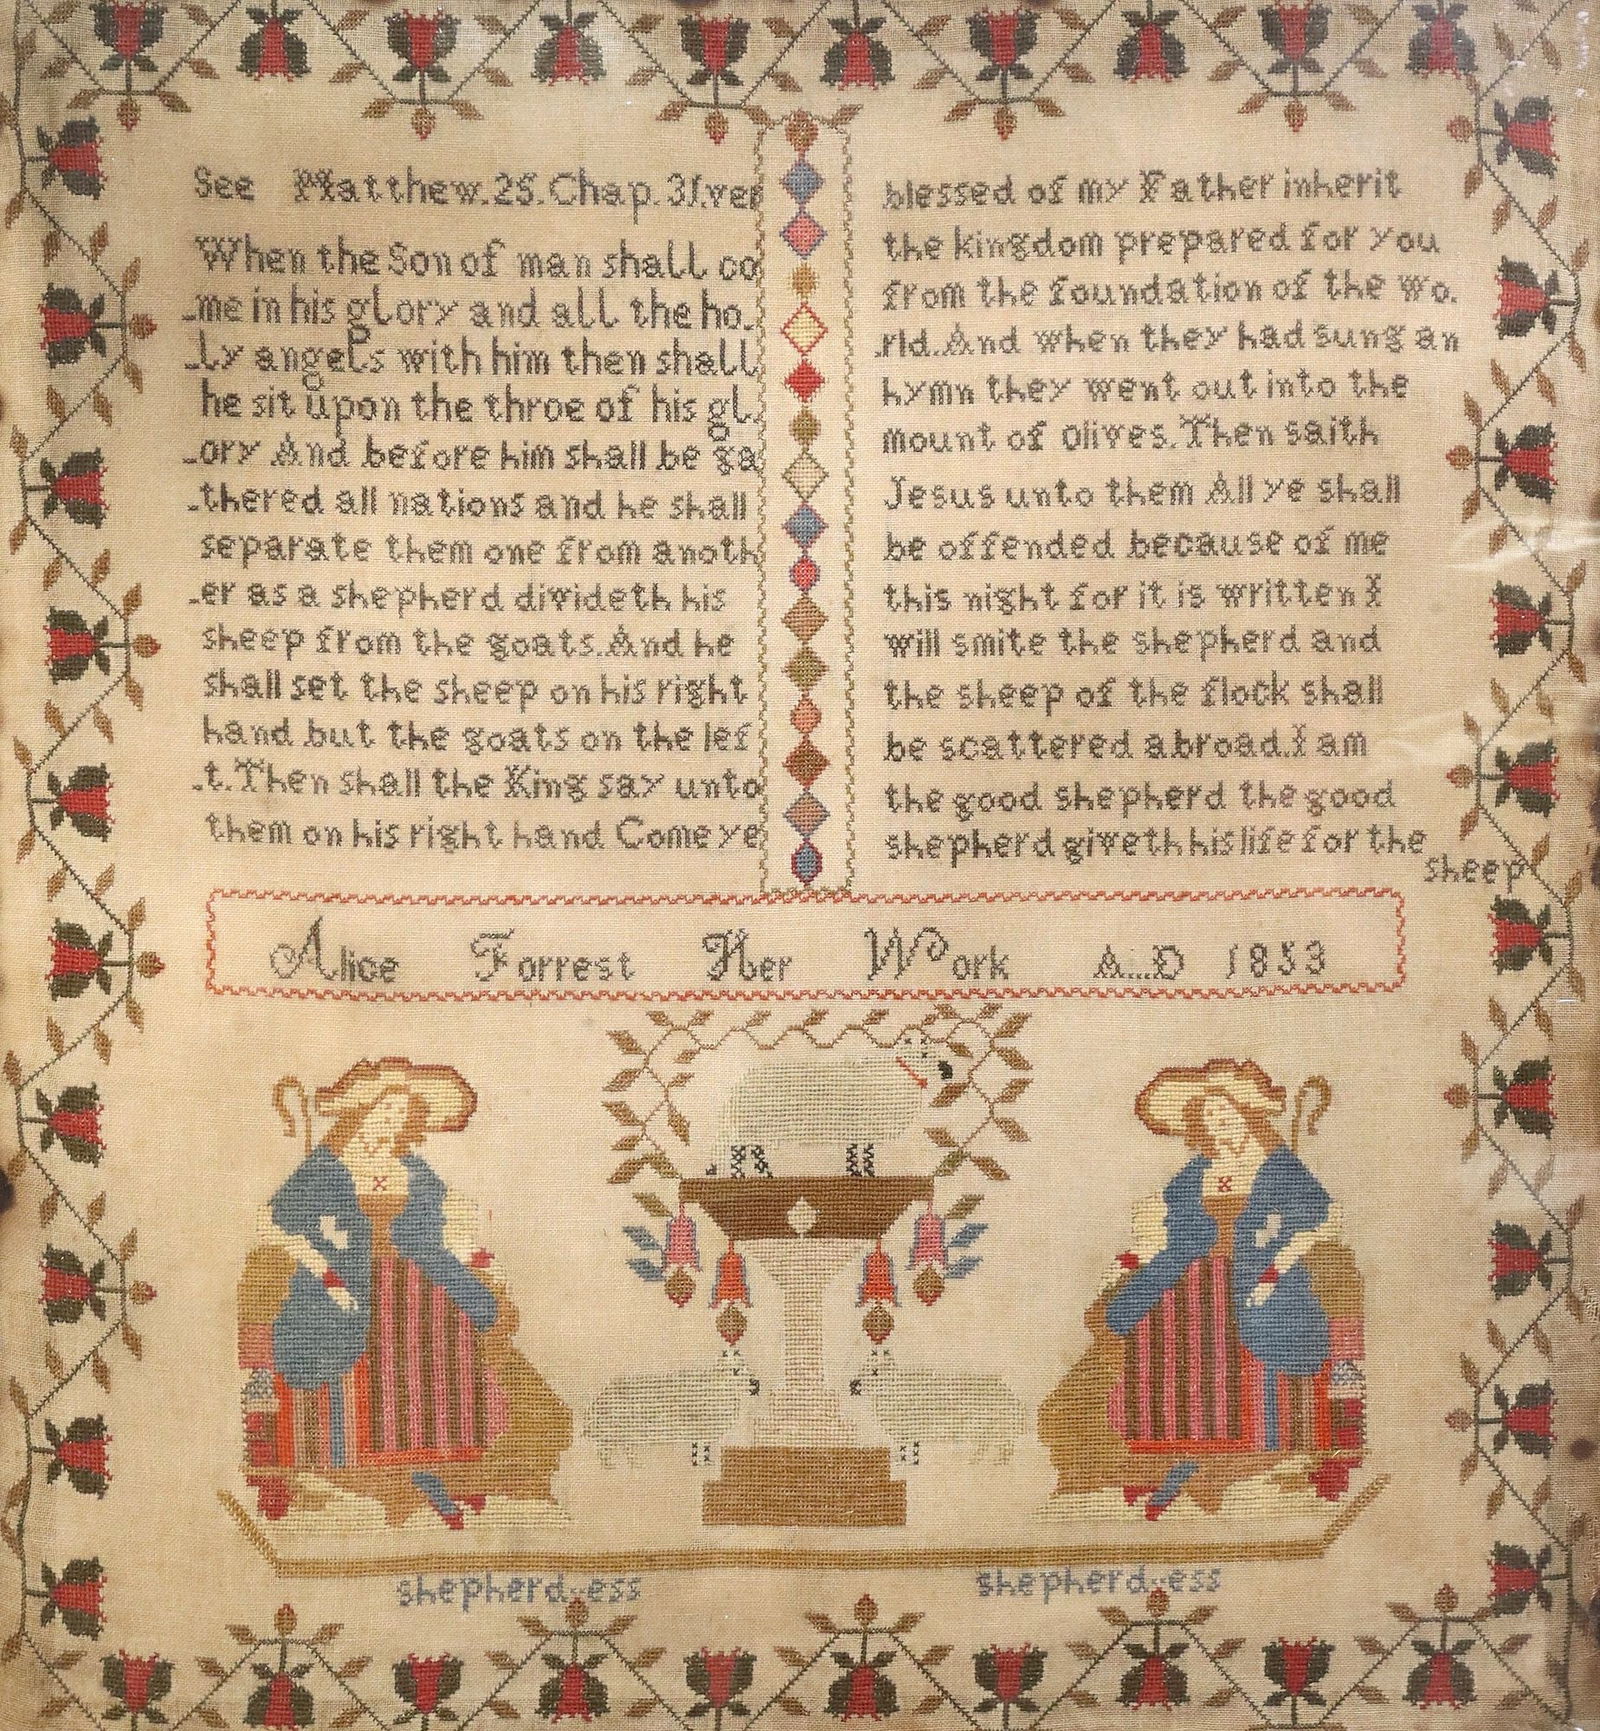 See Matthew.25.Chap.31.ver
When the Son of man shall co
-me in his glory and all the ho-
-ly angels with him then shall
he sit upon the throe of his gl-
-ory And before him shall be ga
-thered all nations and he shall
separate them one from anoth
-er as a shepherd divideth his
sheep from the goats.And he
shall set the sheep on his right
hand but the goats on the lef
-t.Then shall the King say unto
them on his right hand Come ye
blessed of my Father inherit
the kingdom prepared for you
from the foundation of the wo.
.rld.And when they had sung an
hymn they went out into the
mount of Olives.Then saith
Jesus unto them All ye shall
be offended because of me
this night for it is written I
will smite the shepherd and
the sheep of the flock shall
be scattered abroad.I am
the good shepherd the good
shepherd giveth his life for the
sheep
Alice Forrest Her Work A...D 1853
shepherd-ess
shepherd-ess